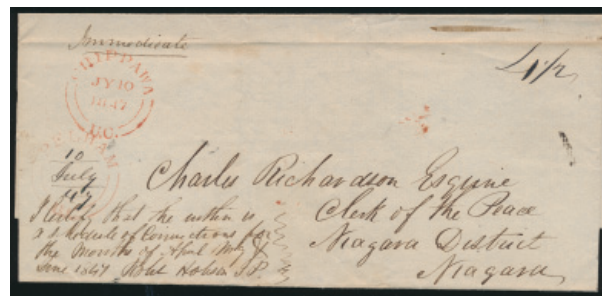 Immediate
4 1/2
CHIPPAWA
JY 10
1847
U.C.
10
July
47
Charles Richardson Esquire
Clerk of the Peace
Niagara District
Niagara
I Certify that the within is
a schedule of Convictions for
the Months of April May &
June 1847 Hobson J.P.